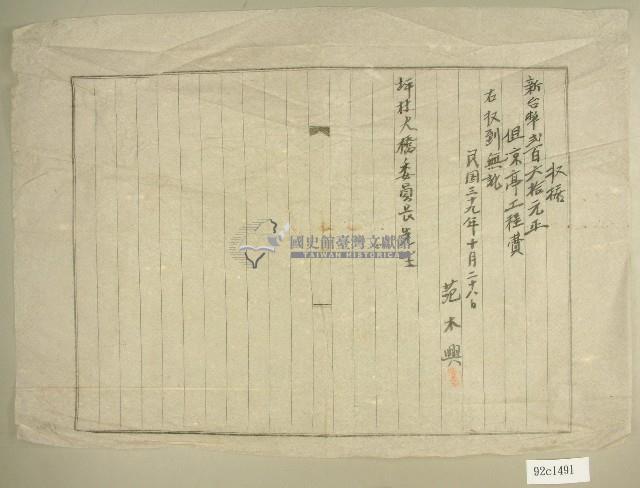 收據
新台幣貳百六拾元正
但凉亭工程費
右收到無訛
民国三十九年十月二十八日
范木興
坪林大橋委員長
國史館臺灣文獻館
TAIWAN HISTORICA
92c1491